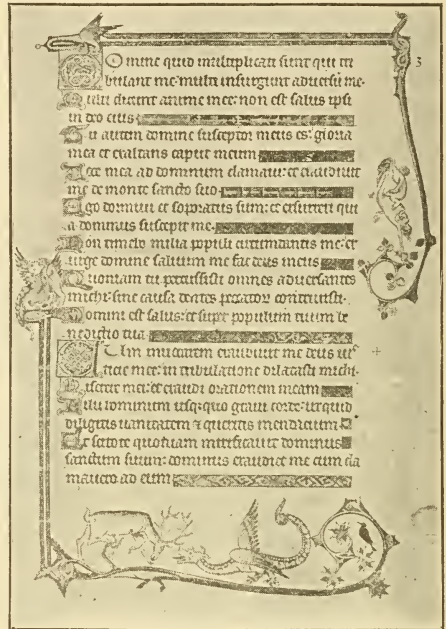 Omine quid multiplicati sunt qui tri
bulant me: multi insurgunt adversū me.
Multi dicunt anime mee: non est salus ipsi
in deo eius.
Tu autem domine susceptor meus es: gloria
mea et exaltans caput meum.
Voce mea ad dominum clamavi: et exaudivit
me de monte sancto suo.
Ego dormivi et soporatus sum: et exsurrexi qui
a dominus suscepit me.
Non timebo milia populi circumdantis me: ex
urge domine salvum me fac deus meus
Quoniam tu percussisti omnes adversantes
michi sine causa: dentes peccator contrivisti.
Domini est salus: et super populum tuum be
nedictio tua
Cum invocarem exaudivit me deus iu
sticie mee: in tribulatione dilatasti michi.
Miserere mei: et exaudi orationem meam
Filii hominum usquequo gravi corde: ut quid
diligitis vanitatem et queritis mendacium
Et scitote quoniam mirificavit dominus
sanctum suum: dominus exaudiet me cum cla
mavero ad eum
3